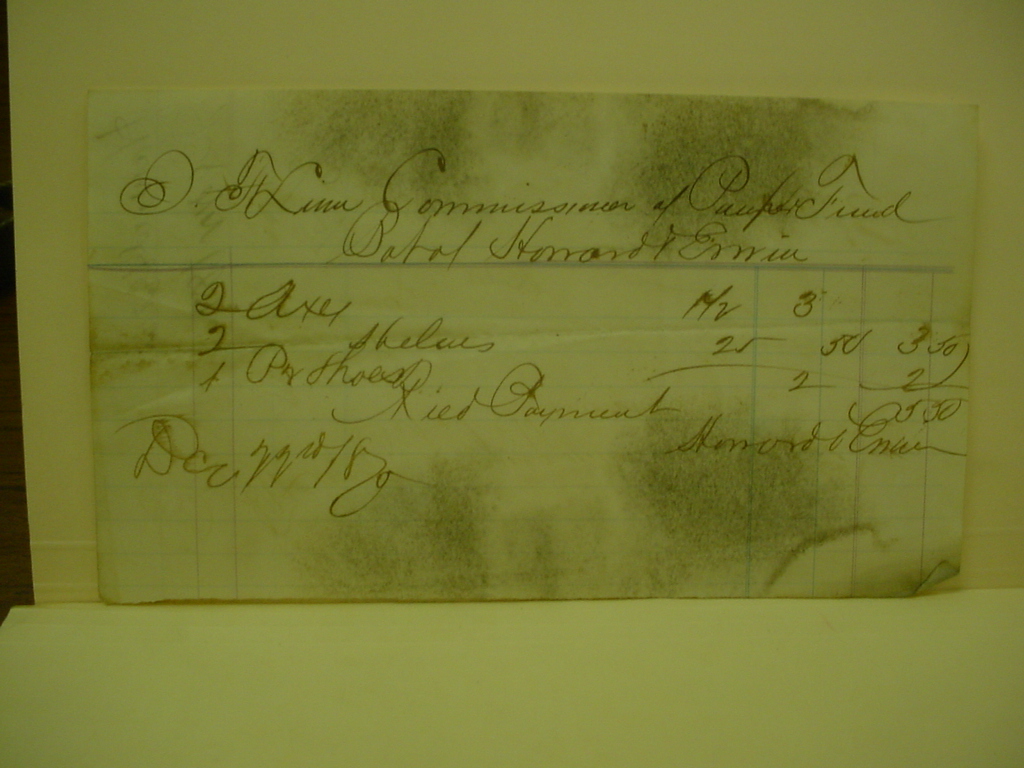 Linn Commissioner of Pauper Fund
Bot of Howard & Erwin
2 Axes 1 1/2 3
2 Helves 25 50 3 50
1 Pr Shoes 2 2
Recd Payment 5 50
Howard & Erwin
Dec 22rd /87